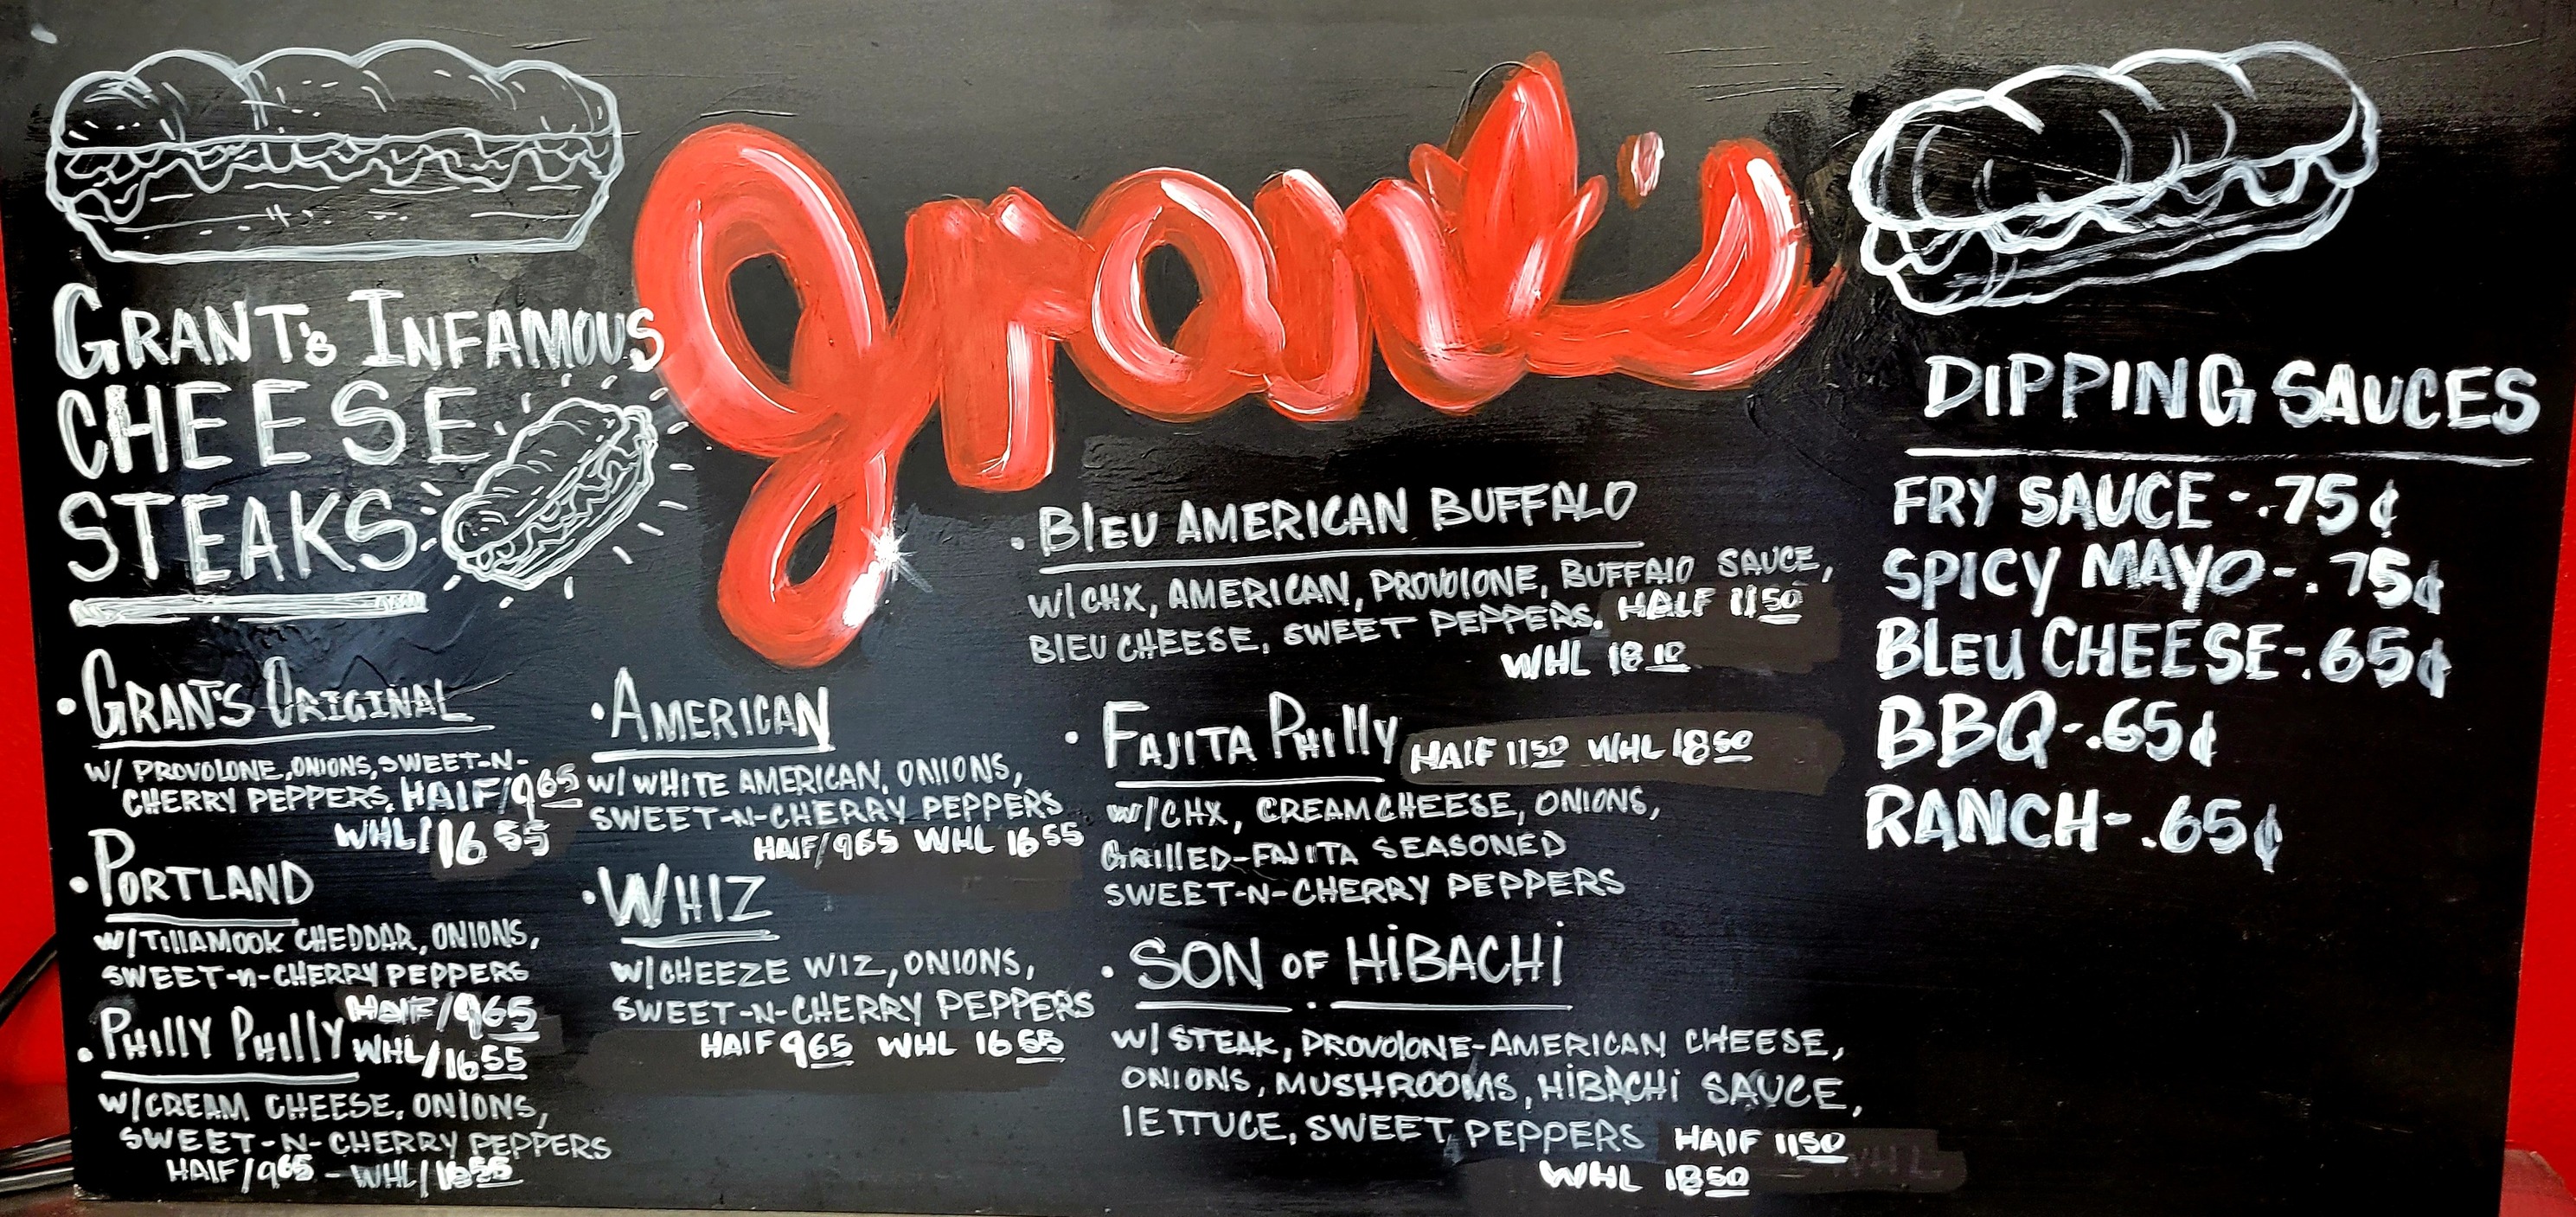 grant's
GRANT'S INFAMOUS
CHEESE
STEAKS
• GRANT'S ORIGINAL
W/ PROVOLONE, ONIONS, SWEET-N-
CHERRY PEPPERS. HALF/9 65
WHL/16 55
• PORTLAND
W/TILLAMOOK CHEDDAR, ONIONS,
SWEET-N-CHERRY PEPPERS
HALF/9 65
WHL/16 55
• PHILLY PHILLY
W/CREAM CHEESE, ONIONS,
SWEET-N-CHERRY PEPPERS
HALF/9 65 - WHL/16 55
• AMERICAN
W/WHITE AMERICAN, ONIONS,
SWEET-N-CHERRY PEPPERS
HALF/9 65 WHL 16 55
• WHIZ
W/CHEEZE WIZ, ONIONS,
SWEET-N-CHERRY PEPPERS
HALF 9 65 WHL 16 55
• BLEU AMERICAN BUFFALO
W/CHX, AMERICAN, PROVOLONE, BUFFALO SAUCE,
BLEU CHEESE, SWEET PEPPERS. HALF 11 50
WHL 18 10
• FAJITA PHILLY HALF 11 50 WHL 18 50
W/CHX, CREAM CHEESE, ONIONS,
GRILLED-FAJITA SEASONED
SWEET-N-CHERRY PEPPERS
• SON OF HIBACHI
W/ STEAK, PROVOLONE-AMERICAN CHEESE,
ONIONS, MUSHROOMS, HIBACHI SAUCE,
LETTUCE, SWEET PEPPERS HALF 11 50
WHL 18 50
DIPPING SAUCES
FRY SAUCE - .75¢
SPICY MAYO - .75¢
BLEU CHEESE - .65¢
BBQ - .65¢
RANCH - .65¢